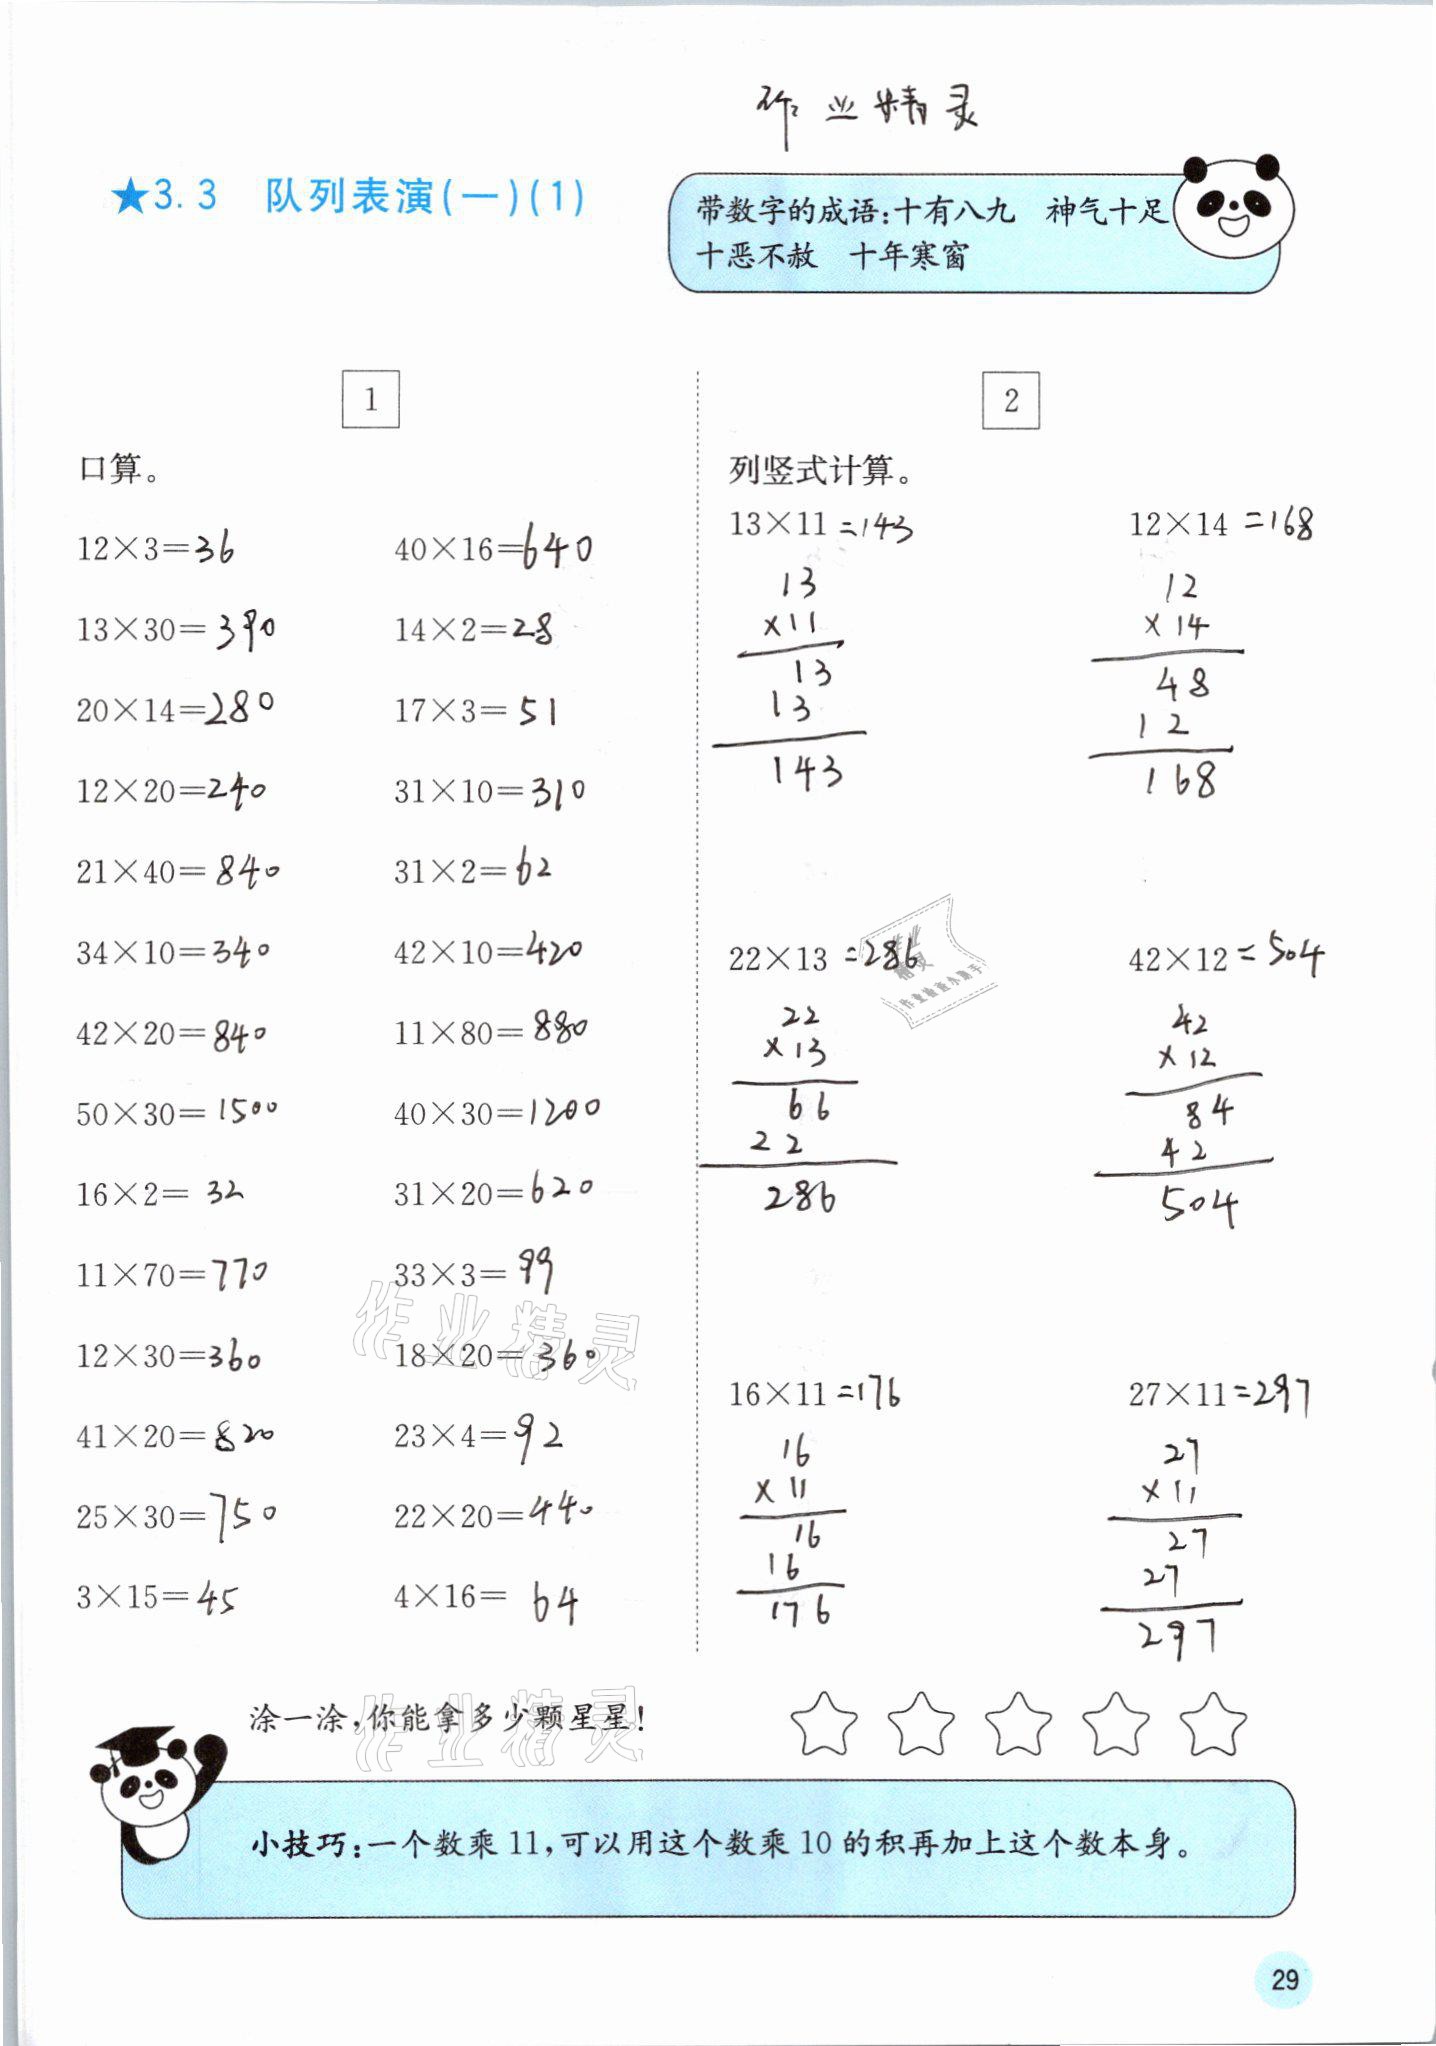 作业精灵
★3.3 队列表演(一)(1)
带数字的成语:十有八九 神气十足
十恶不赦 十年寒窗
1
口算。
12×3=36 40×16=640
13×30=390 14×2=28
20×14=280 17×3=51
12×20=240 31×10=310
21×40=840 31×2=62
34×10=340 42×10=420
42×20=840 11×80=880
50×30=1500 40×30=1200
16×2=32 31×20=620
11×70=770 33×3=99
12×30=360 18×20=360
41×20=820 23×4=92
25×30=750 22×20=440
3×15=45 4×16=64
2
列竖式计算。
13×11=143 12×14=168
13 12
×11 ×14
13 48
13 12
143 168
22×13=286 42×12=504
22 42
×13 ×12
66 84
22 42
286 504
16×11=176 27×11=297
16 27
×11 ×11
16 27
16 27
176 297
作业
精灵
作业检查小助手
作业精灵
涂一涂,你能拿多少颗星星!
作业精灵
小技巧:一个数乘11,可以用这个数乘10的积再加上这个数本身。
29